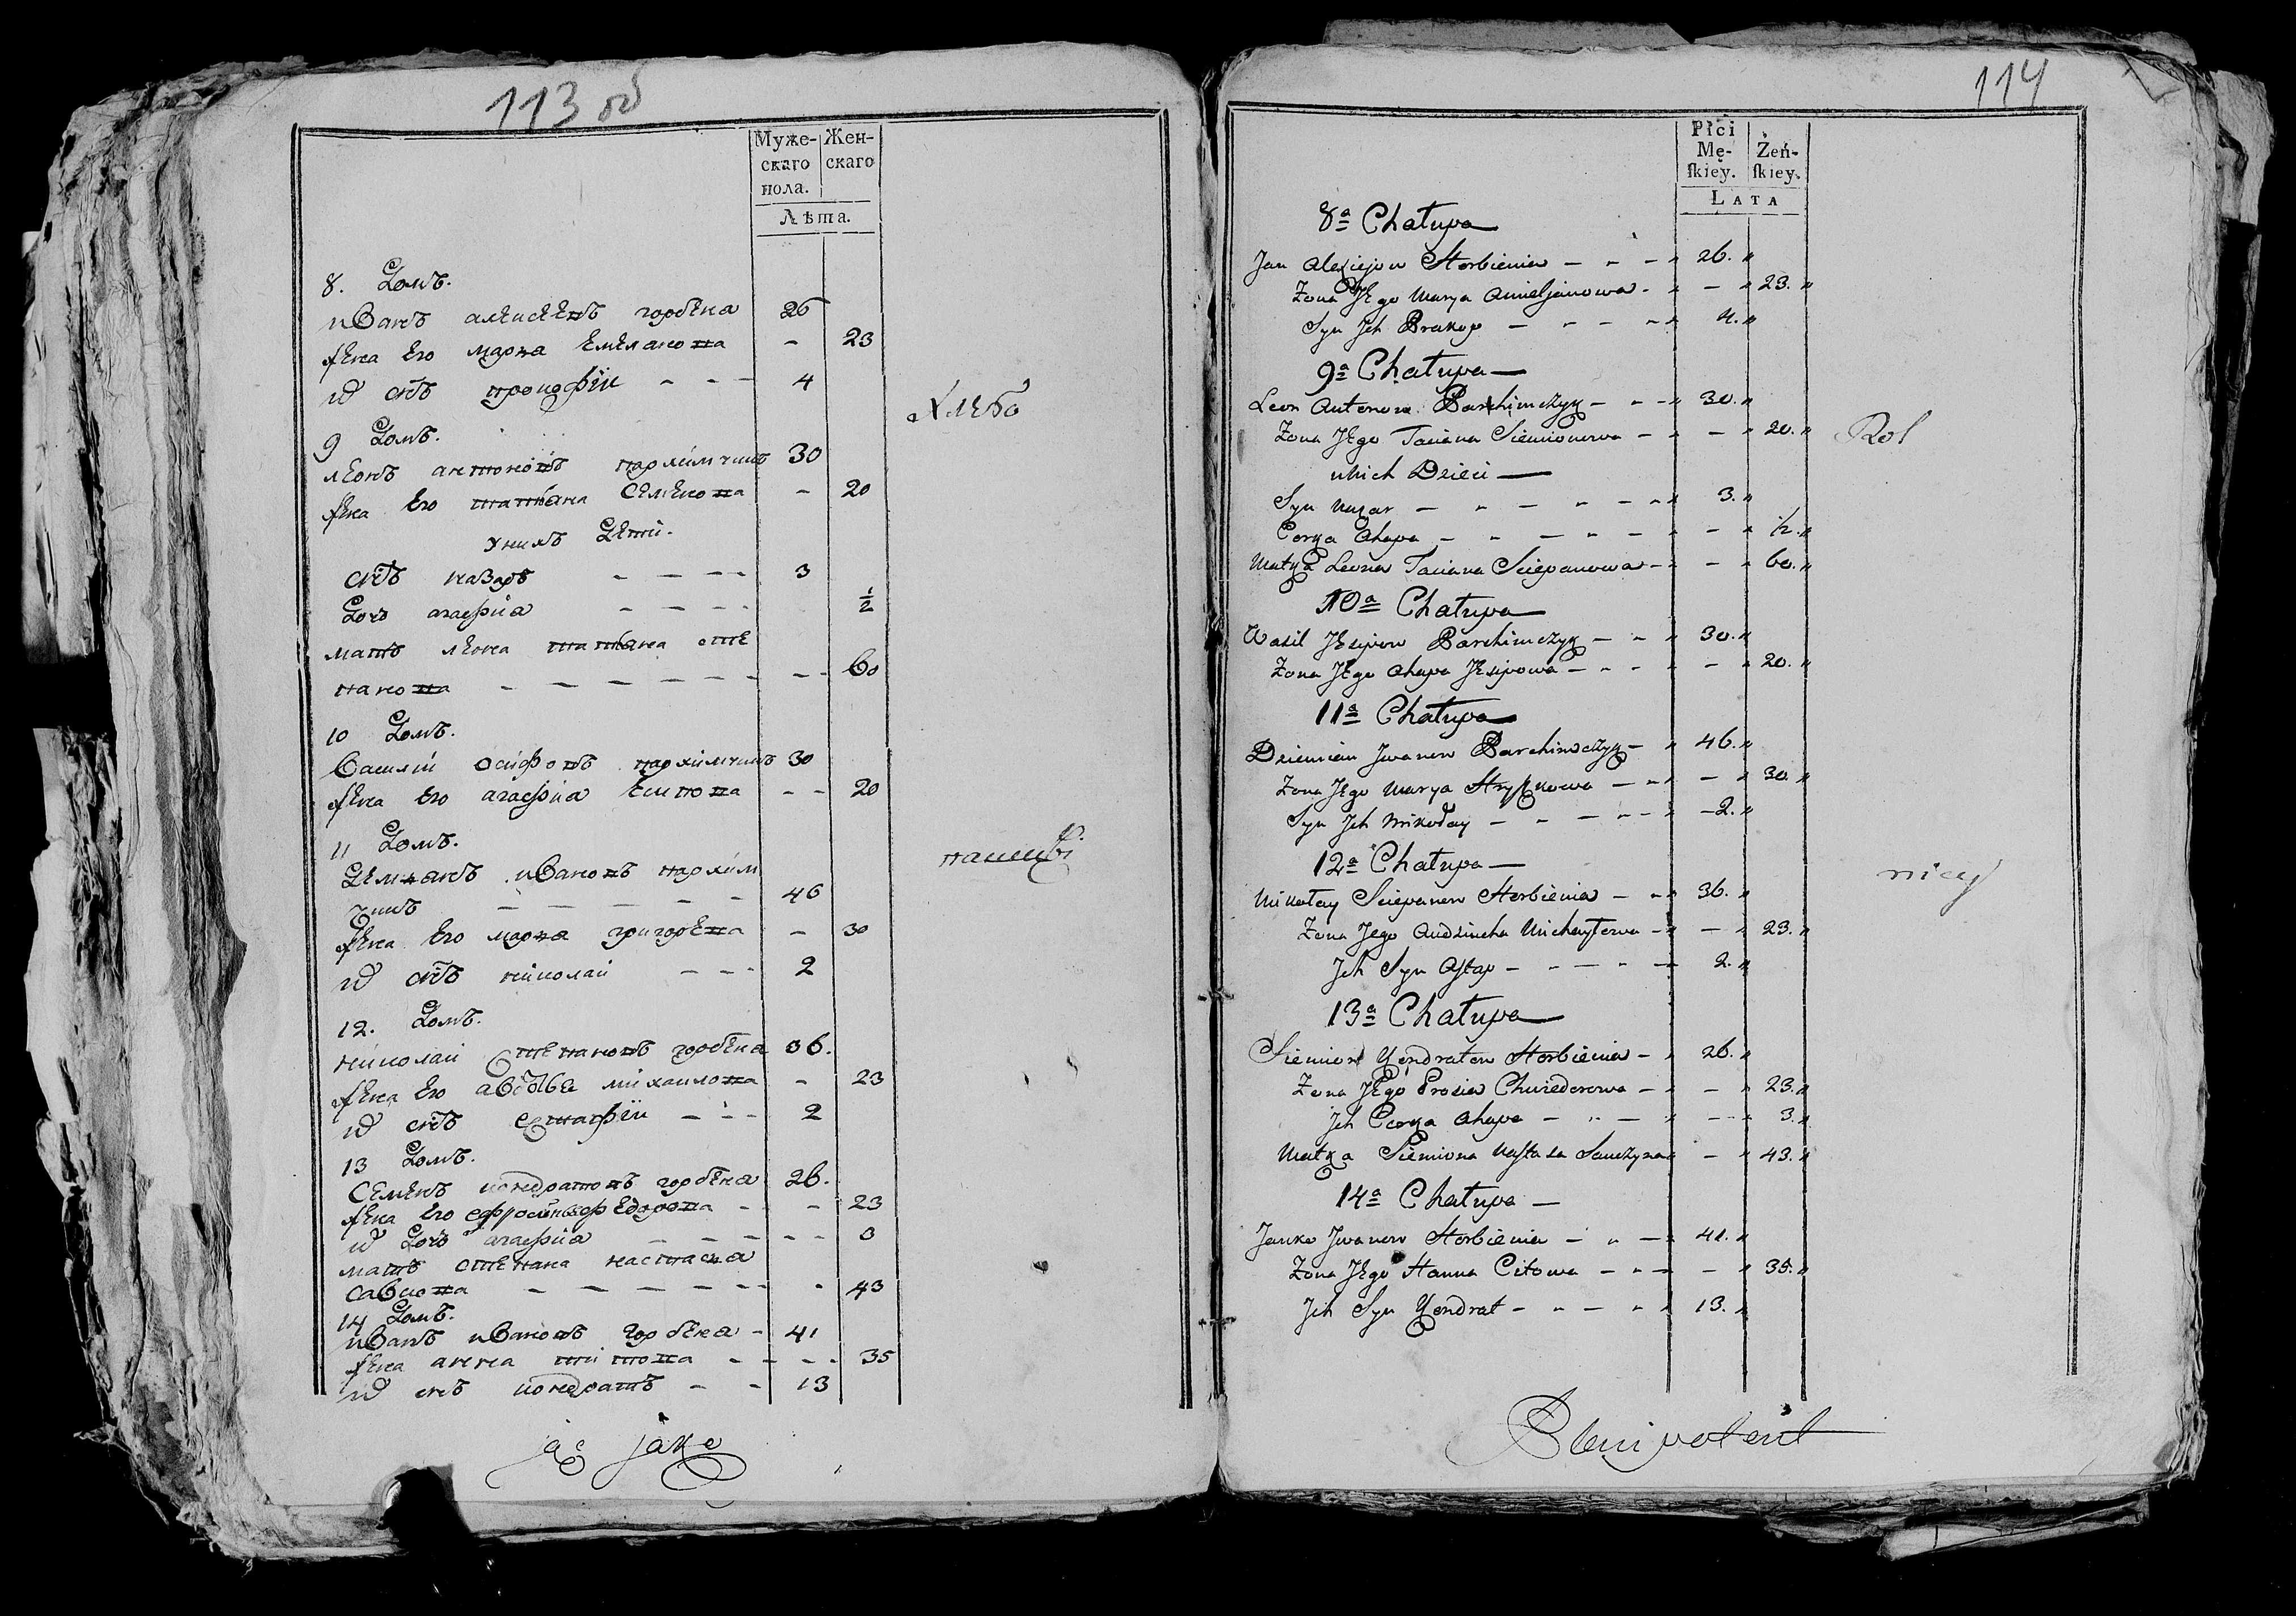 113 об
Муже-
скаго
пола.
Жен-
скаго
Лѣта.
8. Домъ.
иванъ алексеевъ горбена 26
жена его марья емеляно ва - 23
их снъ прокофии - - - 4
9 Домъ.
леонъ антоновъ пархимчикъ 30
жена его татьяна семенова - 20
хлебо
у них дети.
снъ назаръ - - - - 3
дочь агафия - - - - ½
мать леона татьяна сте
панова - - - - - - - 60
10 Домъ.
василии осифовъ пархимчикъ 30
жена его агафия есипова - - 20
11 Домъ.
демьянъ ивановъ пархим
чикъ - - - - - 46
пашцы
жена его марья григорева - 30
их снъ николаи - - - 2
12. Домъ.
николаи степановъ горбена 36.
жена его михаилова - 23
их снъ - - - 2
13 Домъ.
семенъ кондратовъ горбена 26.
жена его федорова - - 23
их дочь агафия - - - - - 3
мать степана настасья
савкова - - - - - - - 43
14 Домъ.
иванъ ивановъ горбена - 41
жена анна титова - - - - 35
их снъ кондратъ - - 13
ie jako
114
Płci
Mę-
ſkiey.
Żeń-
ſkiey.
Lata
8a Chatupa
Jan Alexiejow Horbienia - - - 26. "
Zona JEgo Marya Amieljanowa - - - " 23. "
Syn Jch Prakop - - - - 4. "
9a Chatupa —
Leon Antonow Parchimczyk - - - 30. "
Zona JEgo Taciana Siemionowa - - - " 20. "
Rol
unich Dzieci —
Syn Nazar - - - - - - 3. "
Corka Ahapa - - - - - - - " ½ "
Matka Leona Taciana Sciepanowa - - - " 60. "
10a Chatupa —
Wasil JEsipow Parchimczyk - - - 30. "
Zona JEgo Ahapa JEsipowa - - - - - " 20. "
11a Chatupa
Dziemian Jwanow Parchimczyk - " 46. "
Zona JEgo Marya Hryſzkowa - - - - " 30 "
Syn Jch Mikołay - - - - - - 2. "
12a Chatupa —
Mikołay Sciepanow Horbienia - - - 36. "
nicy
Zona Jego Audziucha Michayłowa - - - " 23. "
Jch Syn Aſtap - - - - - 2. "
13a Chatupa —
Siemion Kondratow Horbienia - - 26. "
Zona JEgo Prosia Chwiedorowa - - - " 23. "
Jch Corka Ahapa - - - - - - - 3. "
Matka Siemiona Naſtasa Sauczyna - - " 43. "
14a Chatupa —
Janko Jwanow Horbienia - " - 41. "
Zona JEgo Hanna Citowa - - - - " 35. "
Jch Syn Kondrat - - - - " 13. "